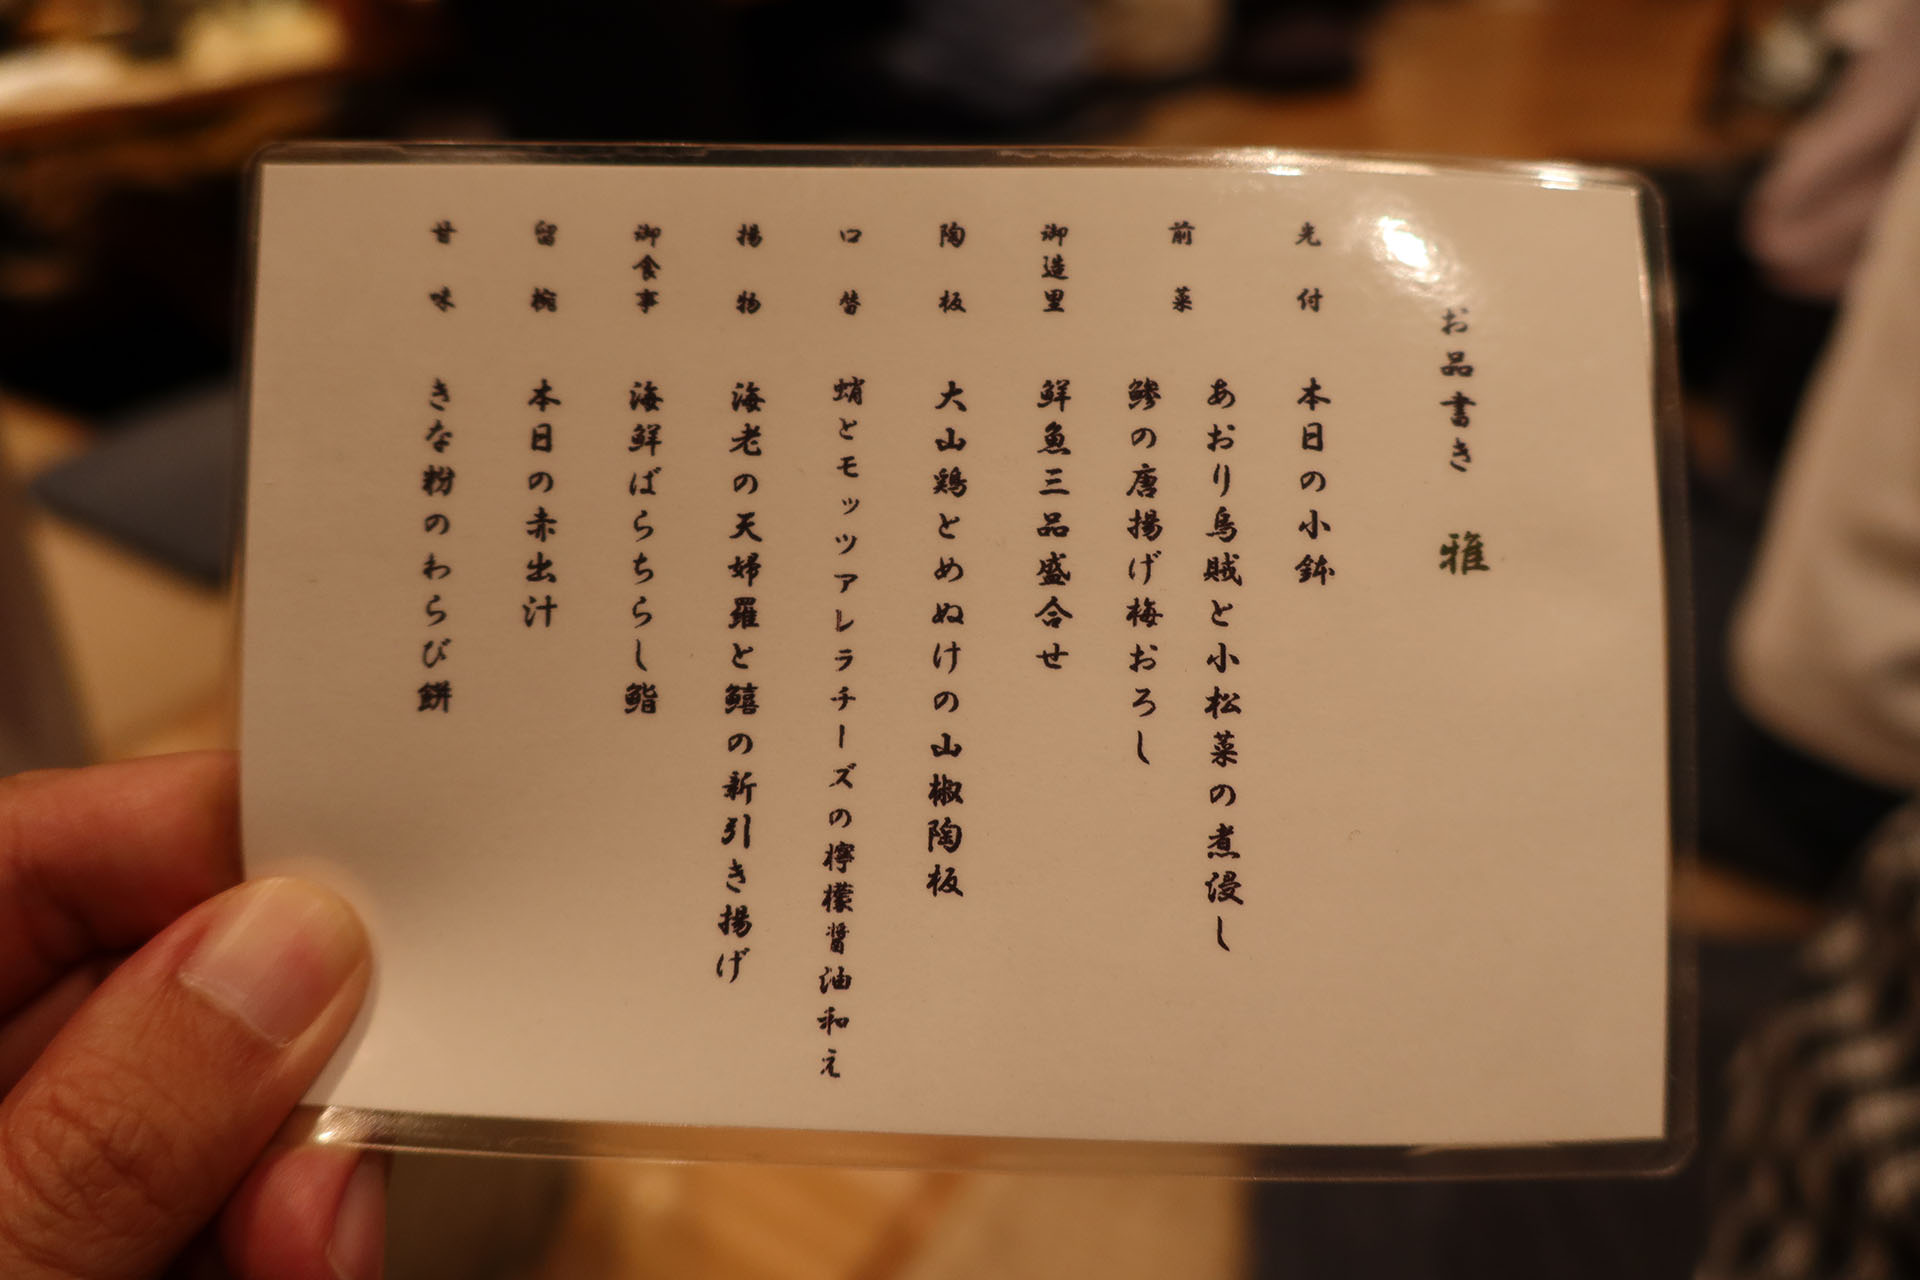 お品書き 雅
先付 本日の小鉢
前菜 あおり烏賊と小松菜の煮浸し
鯵の唐揚げ梅おろし
御造里 鮮魚三品盛合せ
陶板 大山鶏とめぬけの山椒陶板
口替 蛸とモッツァレラチーズの檸檬醤油和え
揚物 海老の天婦羅と鱚の新引き揚げ
御食事 海鮮ばらちらし鮨
留椀 本日の赤出汁
甘味 きな粉のわらび餅